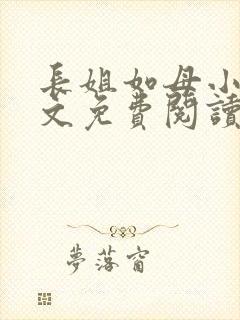 長姐如母小
文免費閱讀
夢落窗